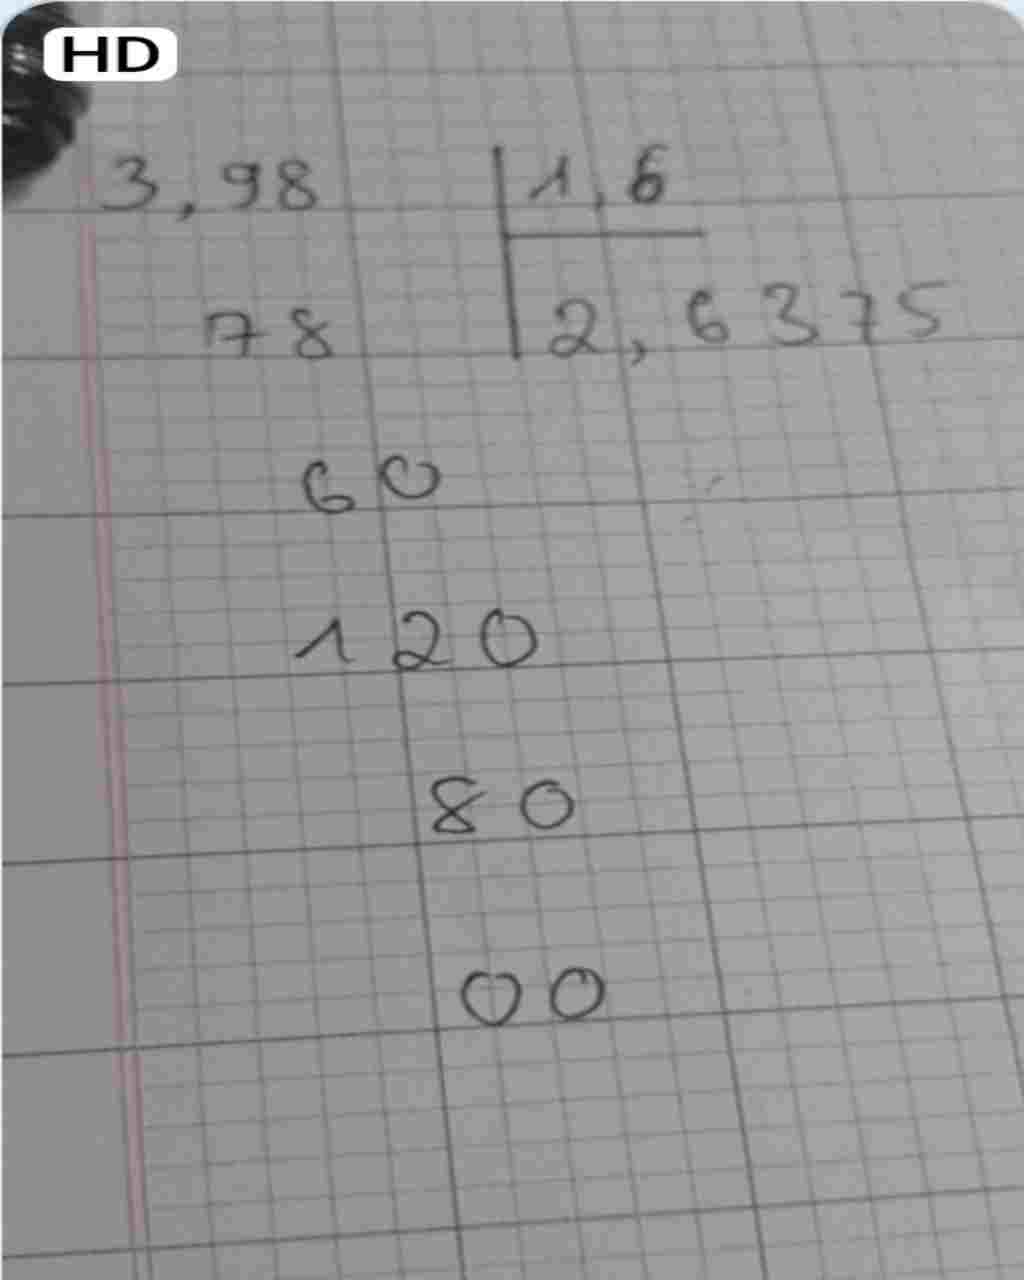 HD
3,98 1,6
78 2,6375
60
120
80
00